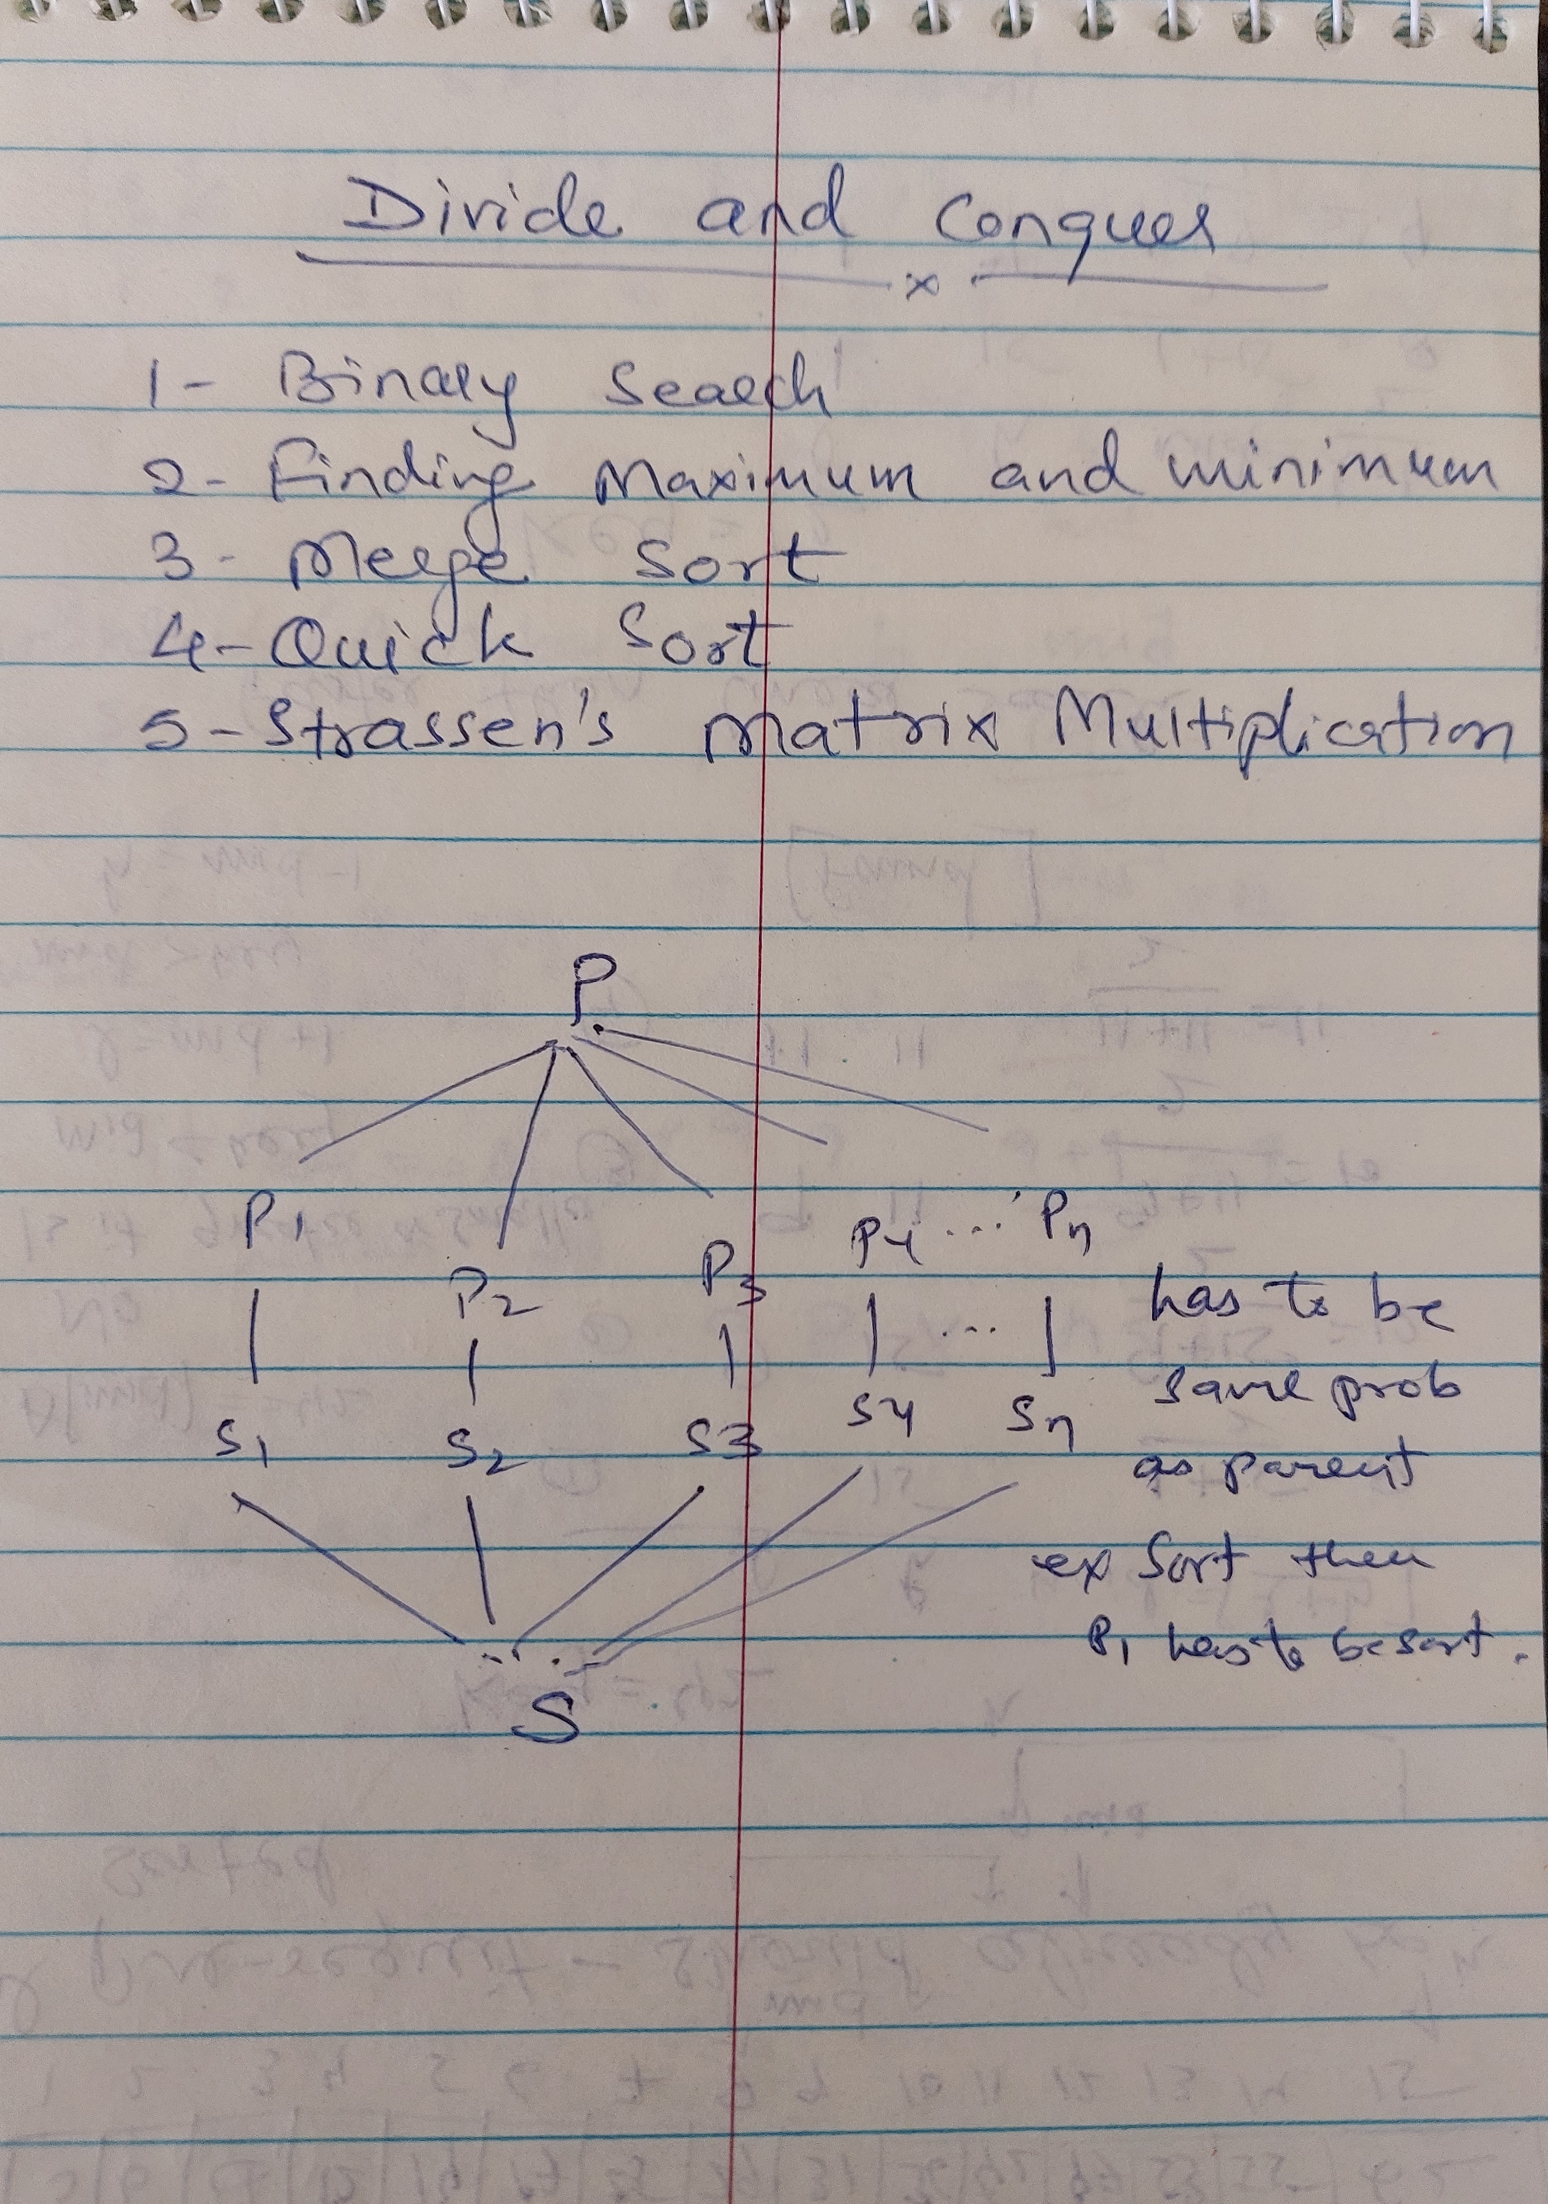 Divide and Conquer
x
1- Binary Search
2- Finding Maximum and minimum
3- Merge Sort
4- Quick Sort
5- Strassen's Matrix Multiplication
P
P1 P2 P3 P4 ... Pn
S1 S2 S3 S4 ... Sn
S
has to be
same prob
as parent
ex Sort then
P1 has to be sort.